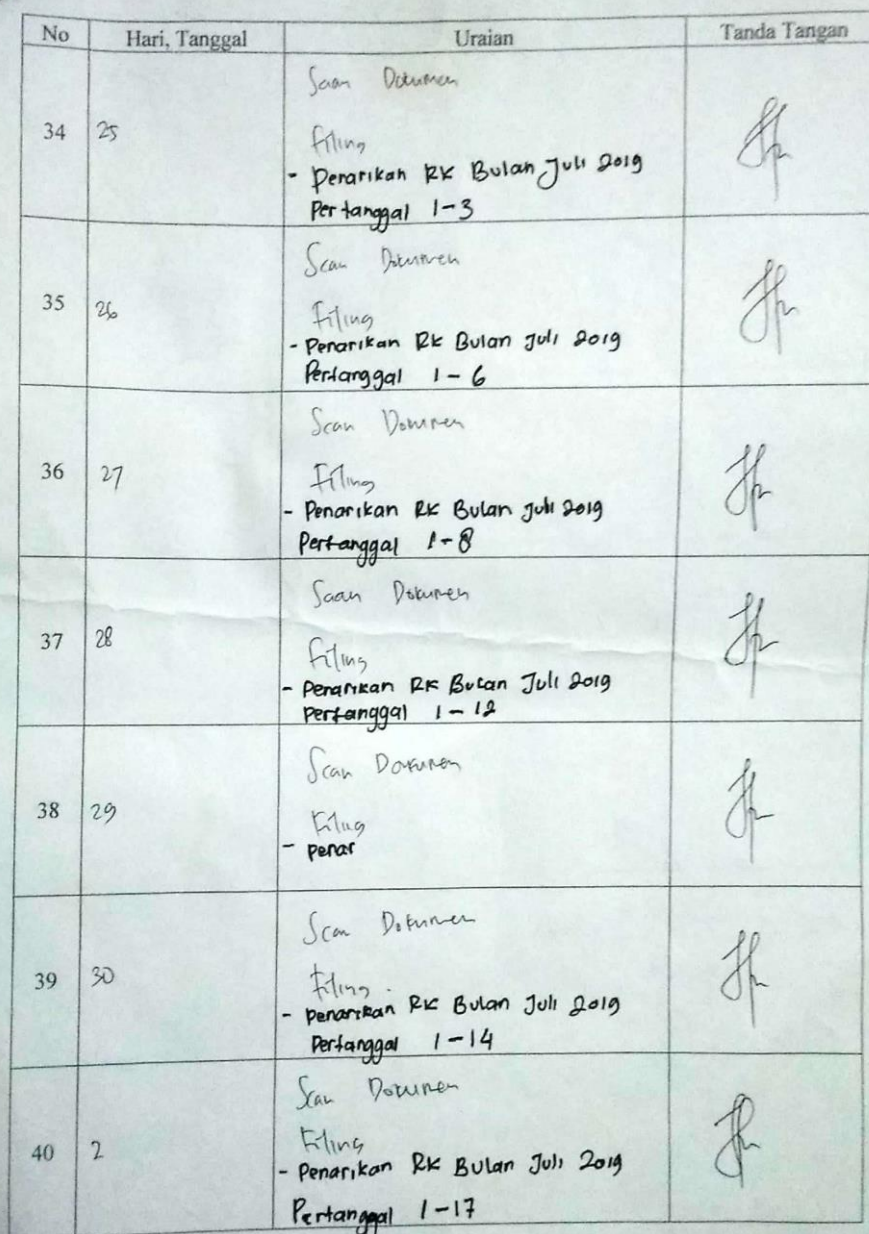 No Hari, Tanggal Uraian Tanda Tangan
34 25 Scan Dokumen
Filing
- Penarikan RK Bulan Juli 2019
Pertanggal 1-3
35 26 Scan Dokumen
Filing
- Penarikan RK Bulan Juli 2019
Pertanggal 1-6
36 27 Scan Dokumen
Filing
- Penarikan RK Bulan Juli 2019
Pertanggal 1-8
37 28 Scan Dokumen
Filing
- Penarikan RK Bulan Juli 2019
Pertanggal 1-12
38 29 Scan Dokumen
Filing
- Penar
39 30 Scan Dokumen
Filing.
- Penarikan RK Bulan Juli 2019
Pertanggal 1-14
40 2 Scan Dokumen
Filing
- Penarikan RK Bulan Juli 2019
Pertanggal 1-17